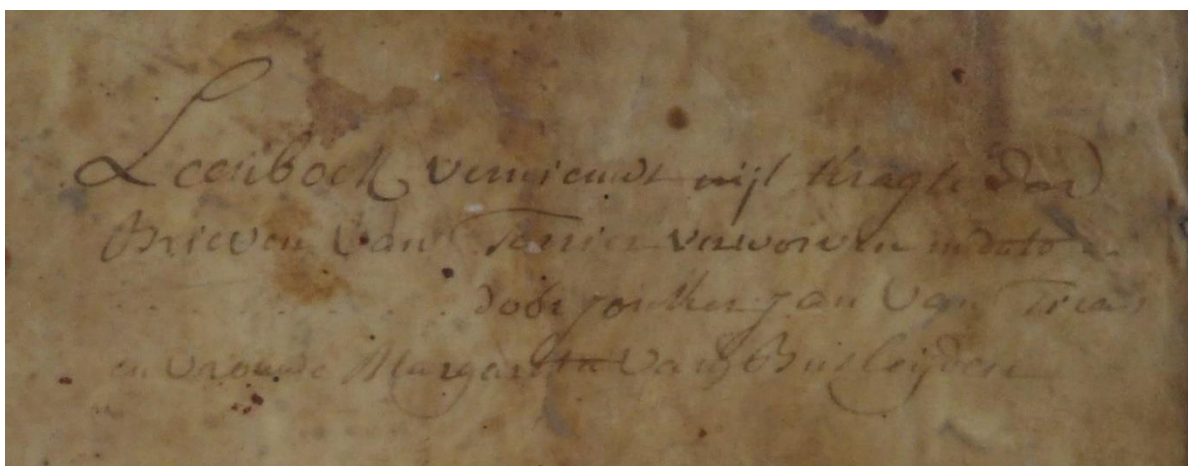 Leenboek vernieuwt uijt kragte der
Brieven van Terrier verworven in dato
door jonker jan van
en vrouwe Margareta van Busleijden